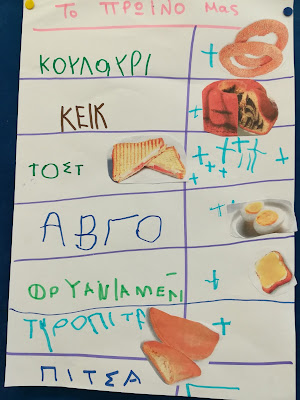 Το ΠΡΩΙΝΟ μας
ΚΟΥΛΟΥΡΙ
ΚΕΙΚ
ΤΟΣΤ
ΑΒΓΟ
ΦΡΥΑΝΙΑΜΕΝ
ΤΥΡΟΠΙΤΑ
ΠΙΤΣΑ